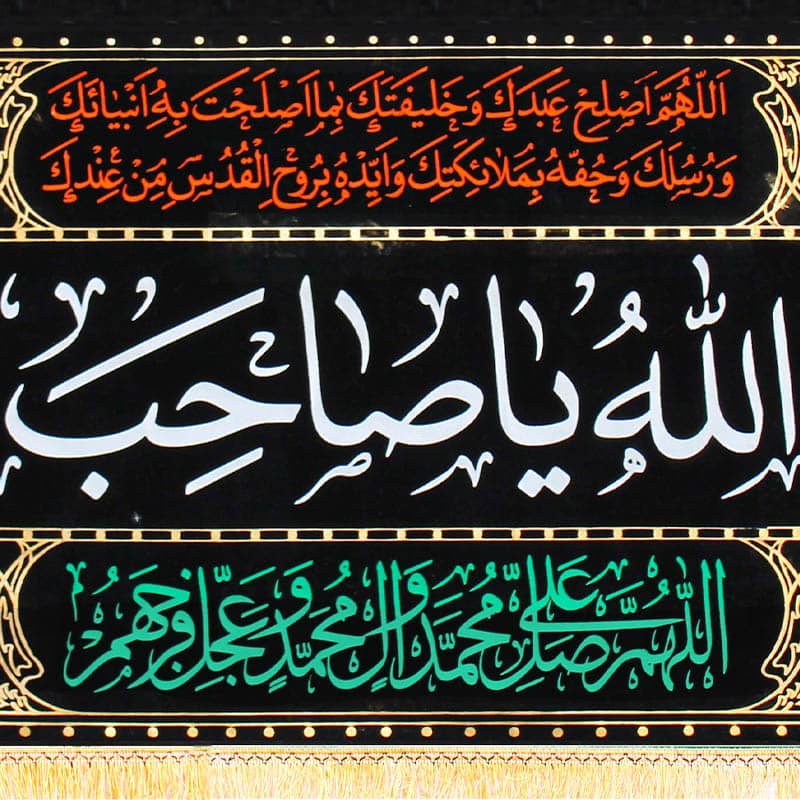 اَللّهُمَّ اَصْلِحْ عَبَدَكَ وَ خَليفَتَكَ بِما اَصْلَحْتَ بِهِ اَنْبْيائَكَ
وَ رُسُلَكَ وَ حُفّهُ بِمَلائِكَتِكَ وَ ايِّدْهُ بِرُوحْ اِلْقُدُسِ مِنْ عِنْدِكَ
اللهُ يا صاحِبَ
اللّهُمَّ صَلِّ عَلى مُحَمَّدٍ وَ الِ مُحَمَّدٍ وَ عَجِّلْ فَرَجَهُمْ